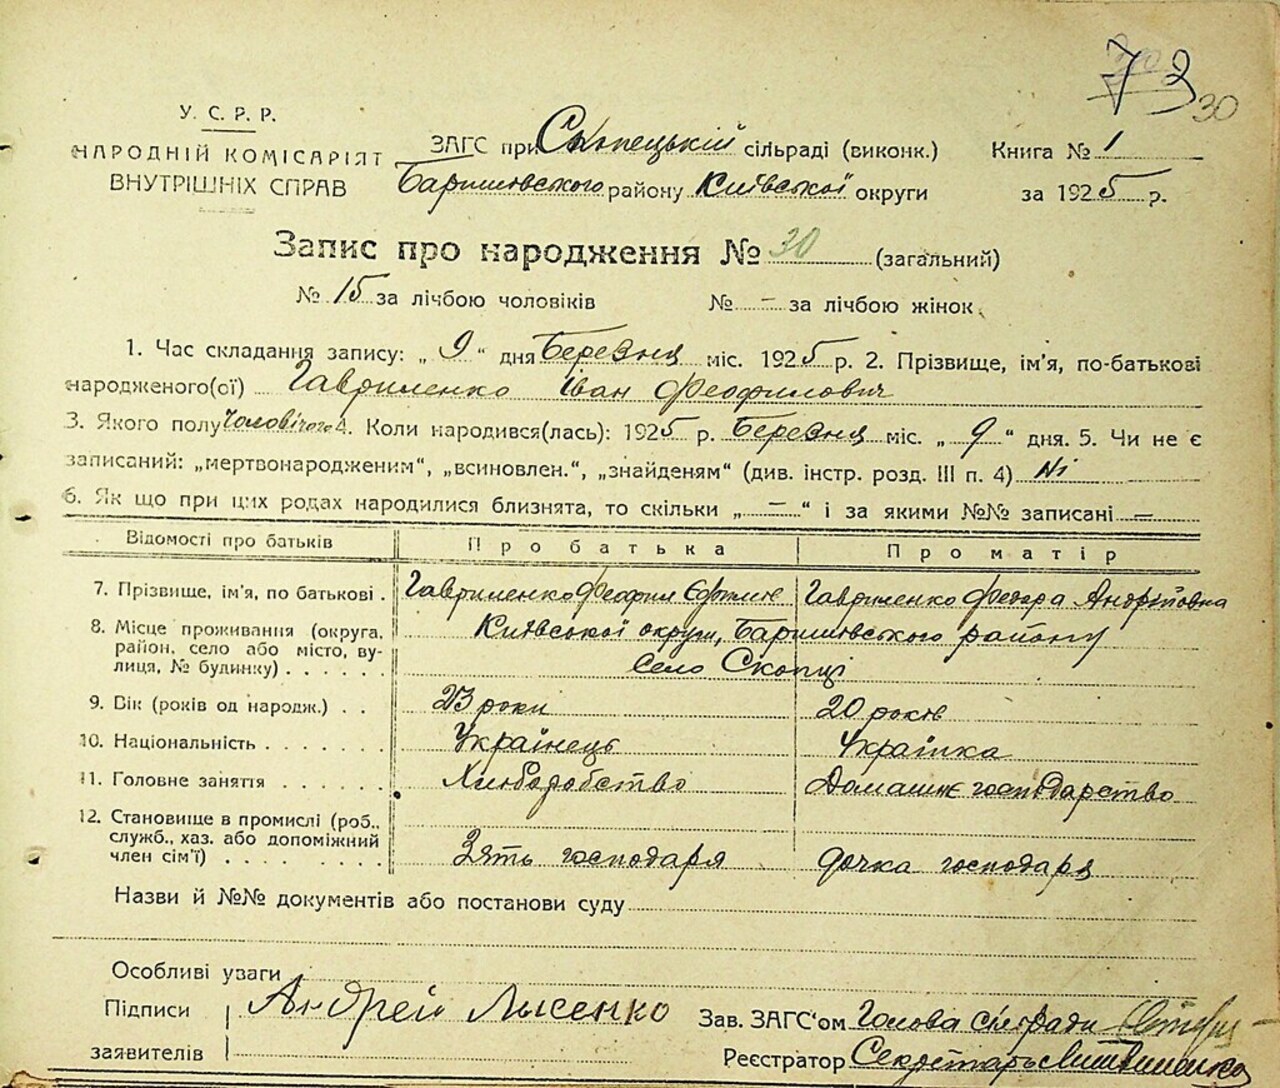 73
30
У. С. Р. Р.
НАРОДНІЙ КОМІСАРІЯТ
ВНУТРІШНІХ СПРАВ
ЗАГС при Скопецькій сільраді (виконк.) Книга № 1
Баришовського району Київської округи за 1925 р.
Запис про народження № 30 (загальний)
№ 15 за лічбою чоловіків № — за лічбою жінок
1. Час складання запису: „ 9 “ дня Березня міс. 1925 р. 2. Прізвище, ім'я, по-батькові
народженого(ої) Гавриленко Іван Феофилович
3. Якого полу Чоловічого 4. Коли народився(лась): 1925 р. Березня міс. „ 9 “ дня. 5. Чи не є
записаний: „мертвонародженим“, „всиновлен.“, „знайденям“ (див. інстр. розд. III п. 4) Ні
6. Як що при цих родах народилися близнята, то скільки „ — “ і за якими №№ записані —
Відомості про батьків Про батька Про матір
7. Прізвище, ім'я, по батькові . Гавриленко Феофил Гавриленко Федора Андрійовна
8. Місце проживання (округа, Київської округи, Баришовського району
район, село або місто, ву-
лиця, № будинку) . . . . . . село Скопці
9. Вік (років од народж.) . . 23 роки 20 років
10. Національність . . . . . . . Українець Українка
11. Головне заняття . . . . . . Хліборобство Домашнє господарство
12. Становище в промислі (роб.,
служб., хаз. або допоміжний
член сім'ї) . . . . . . . . . Зять господаря дочка господаря
Назви й №№ документів або постанови суду
Особливі уваги
Підписи Андрей Лысенко Зав. ЗАГС'ом Голова сільради
заявителів Реєстратор Секретарь Литвиненко